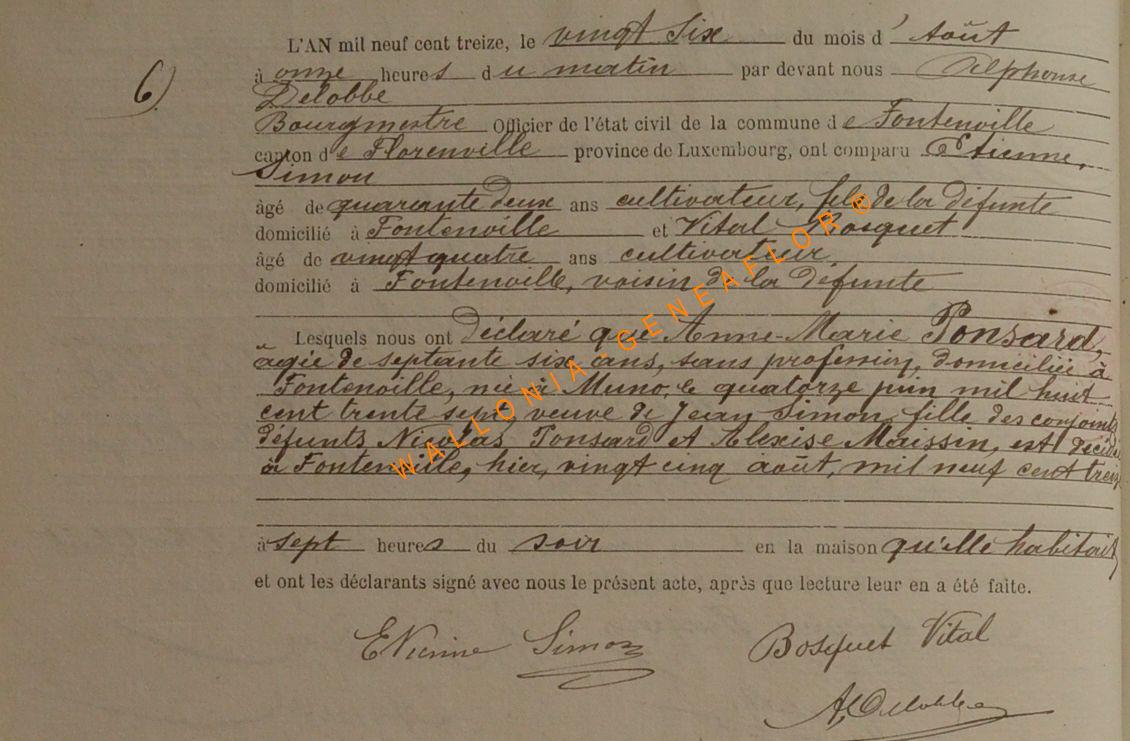 6)
L'AN mil neuf cent treize, le vingt six du mois d' Août
à onze heures du matin par devant nous Alphonse
Delobbe
Bourgmestre Officier de l'état civil de la commune de Fontenoille
canton de Florenville province de Luxembourg, ont comparu Etienne,
Simon
âgé de quarante deux ans cultivateur, fils de la défunte
domicilié à Fontenoille et Vital Bosquet
âgé de vingt quatre ans cultivateur
domicilié à Fontenoille, voisin de la défunte
Lesquels nous ont déclaré que Anne-Marie Ponsard,
âgée de septante six ans, sans profession, domiciliée à
Fontenoille, née à Muno, le quatorze juin mil huit
cent trente sept veuve de Jean Simon, fille des conjoints
défunts Nicolas Ponsard et Alexise Maissin, est décédée
à Fontenoille, hier, vingt cinq août, mil neuf cent treize
à sept heures du soir en la maison qu'elle habitait
et ont les déclarants signé avec nous le présent acte, après que lecture leur en a été faite.
Etienne Simon Bosquet Vital
A. Delobbe
WALLONIA-GENEAFLOR ®